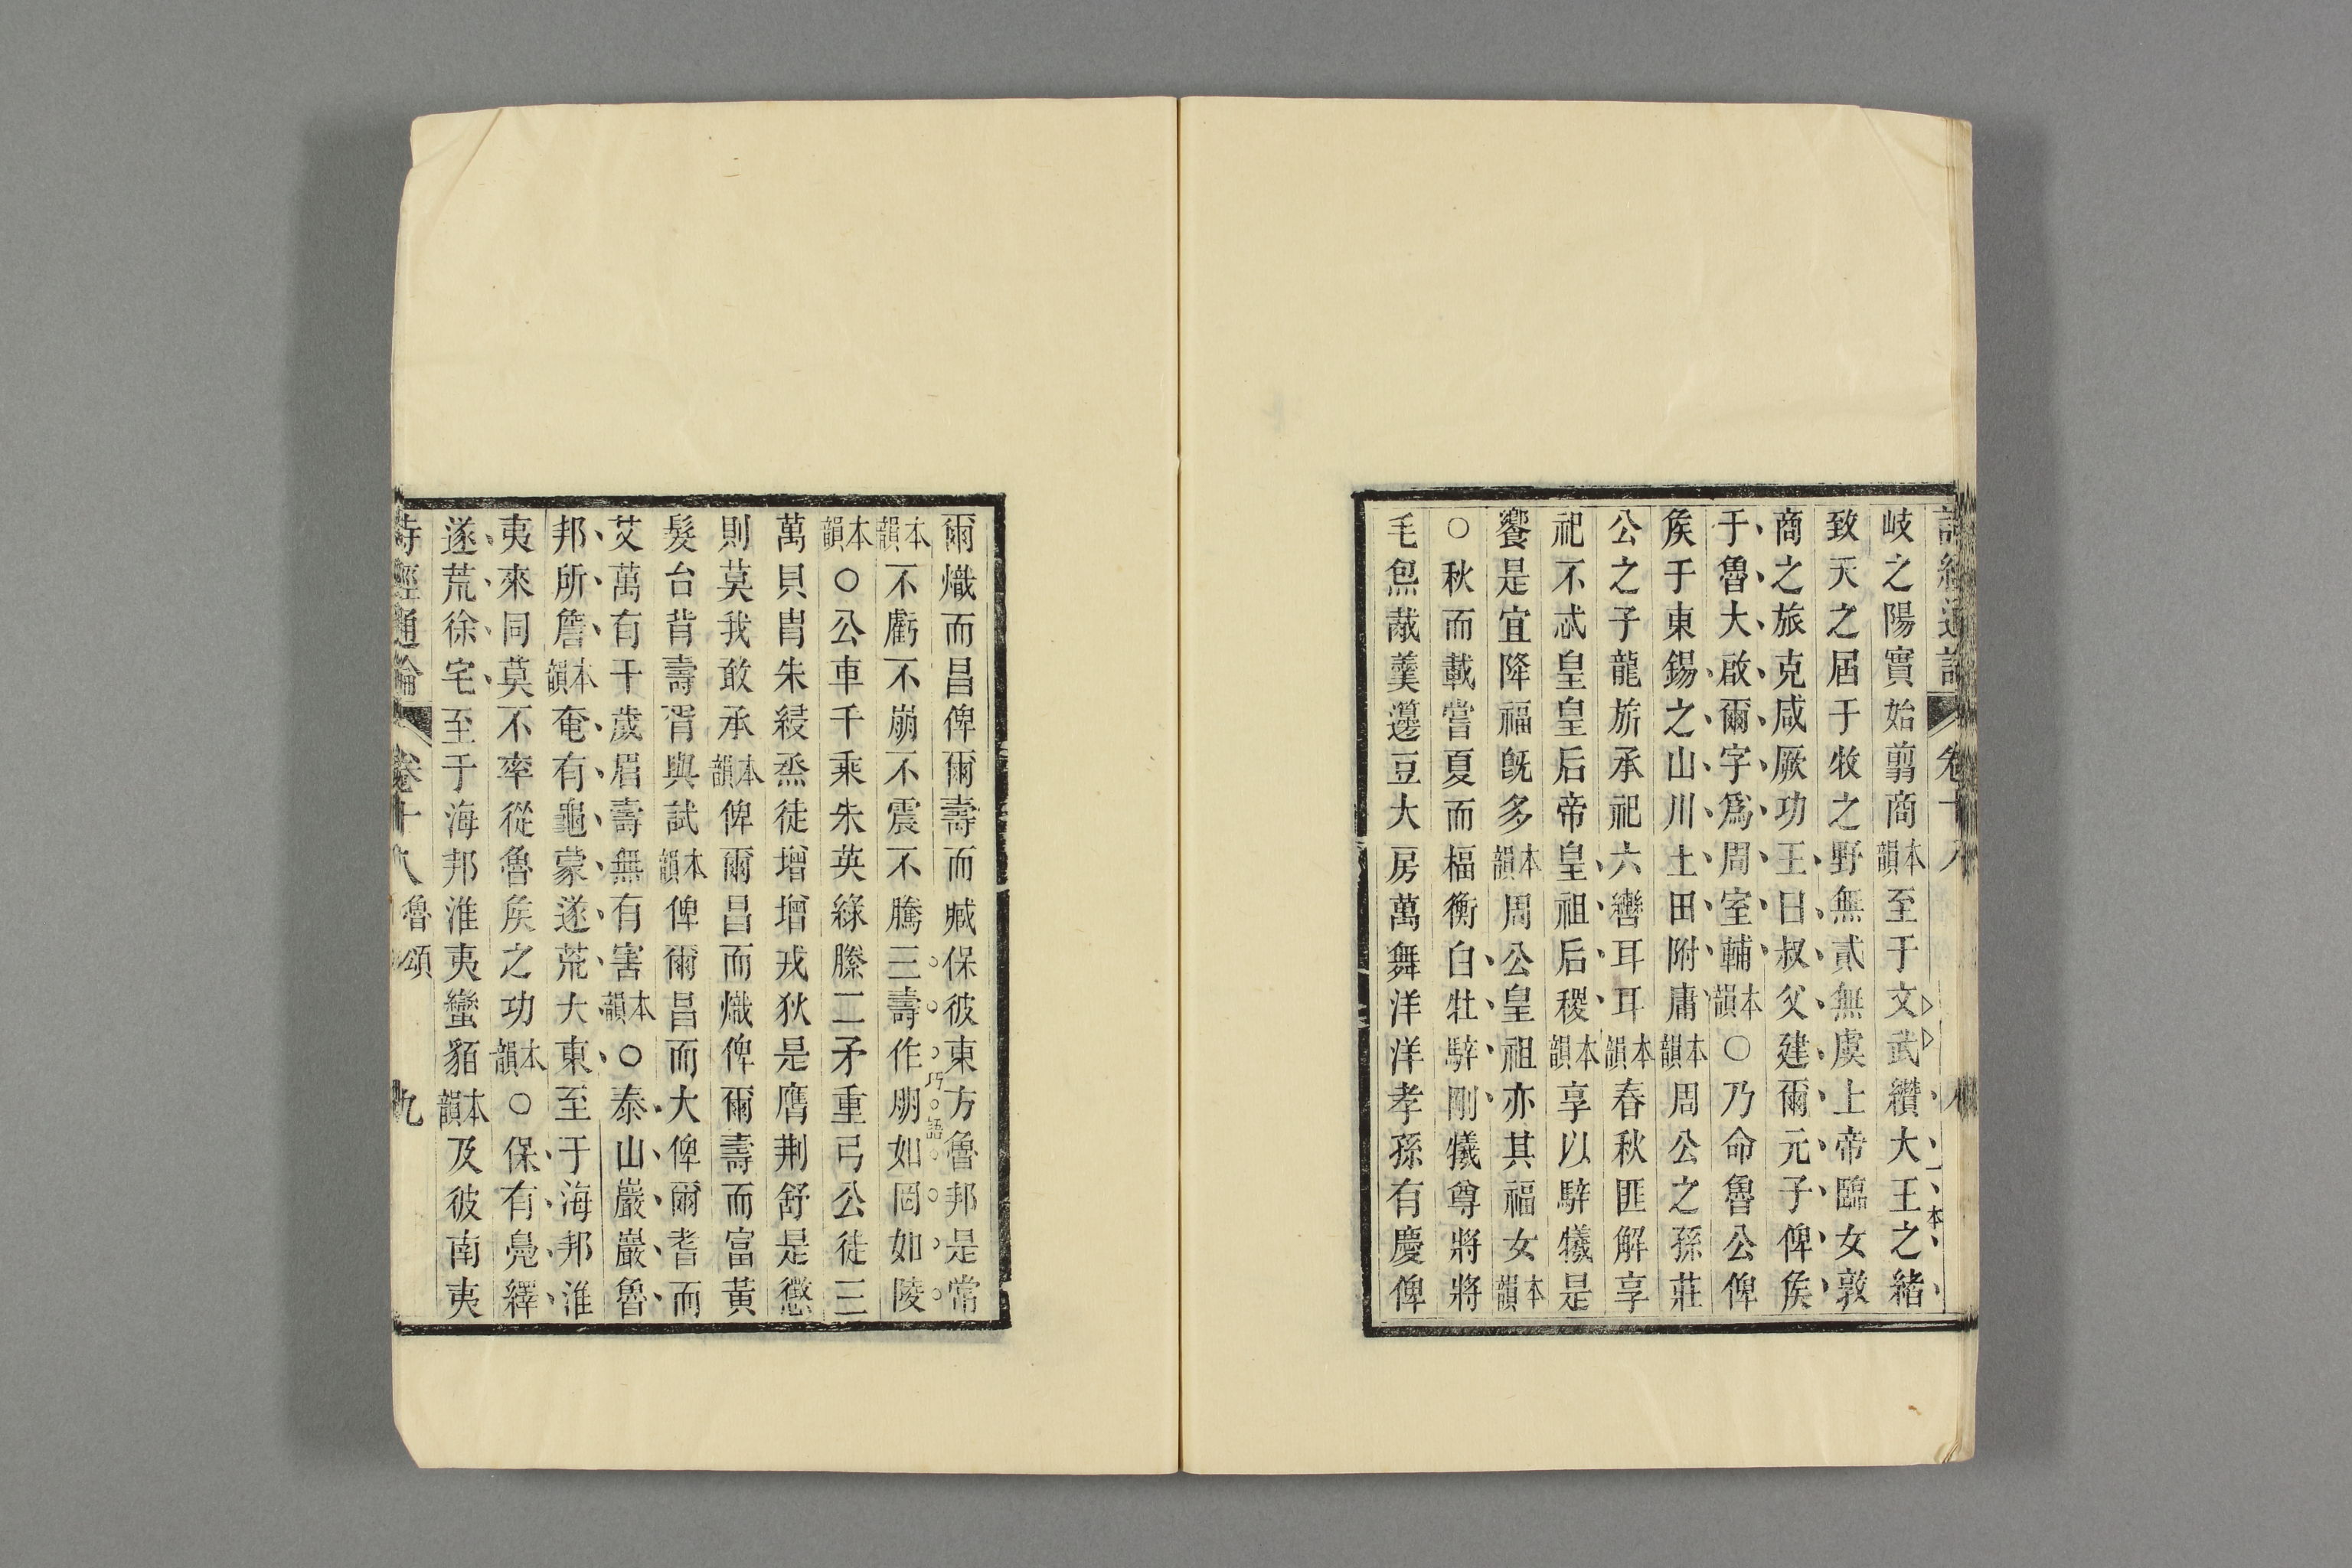 詩經通論 卷十八
岐之陽實始翦商本韻至于文武纘大王之緒
致天之屆于牧之野無貳無虞上帝臨女敦
商之旅克咸厥功王曰叔父建爾元子俾矦
于魯大啟爾字爲周室輔本韻○乃命魯公俾
矦于東錫之山川土田附庸本韻周公之孫莊
公之子龍旂承祀六轡耳耳本韻春秋匪解享
祀不忒皇皇后帝皇祖后稷本韻享以騂犧是
饗是宜降福旣多本韻周公皇祖亦其福女本韻
○秋而載嘗夏而楅衡白牡騂剛犧尊將將
毛炰胾羹籩豆大房萬舞洋洋孝孫有慶俾
爾熾而昌俾爾壽而臧保彼東方魯邦是常
本韻不虧不崩不震不騰三壽作朋如岡如陵
巧語
本韻○公車千乘朱英綠縢二矛重弓公徒三
萬貝胄朱綅烝徒增增戎狄是膺荆舒是懲
則莫我敢承本韻俾爾昌而熾俾爾壽而富黃
髮台背壽胥與試本韻俾爾昌而大俾爾耆而
艾萬有千歲眉壽無有害本韻○泰山巖巖魯
邦所詹本韻奄有龜蒙遂荒大東至于海邦淮
夷來同莫不率從魯矦之功本韻○保有鳧繹
遂荒徐宅至于海邦淮夷蠻貊本韻及彼南夷
詩經通論 卷十八 魯頌 九